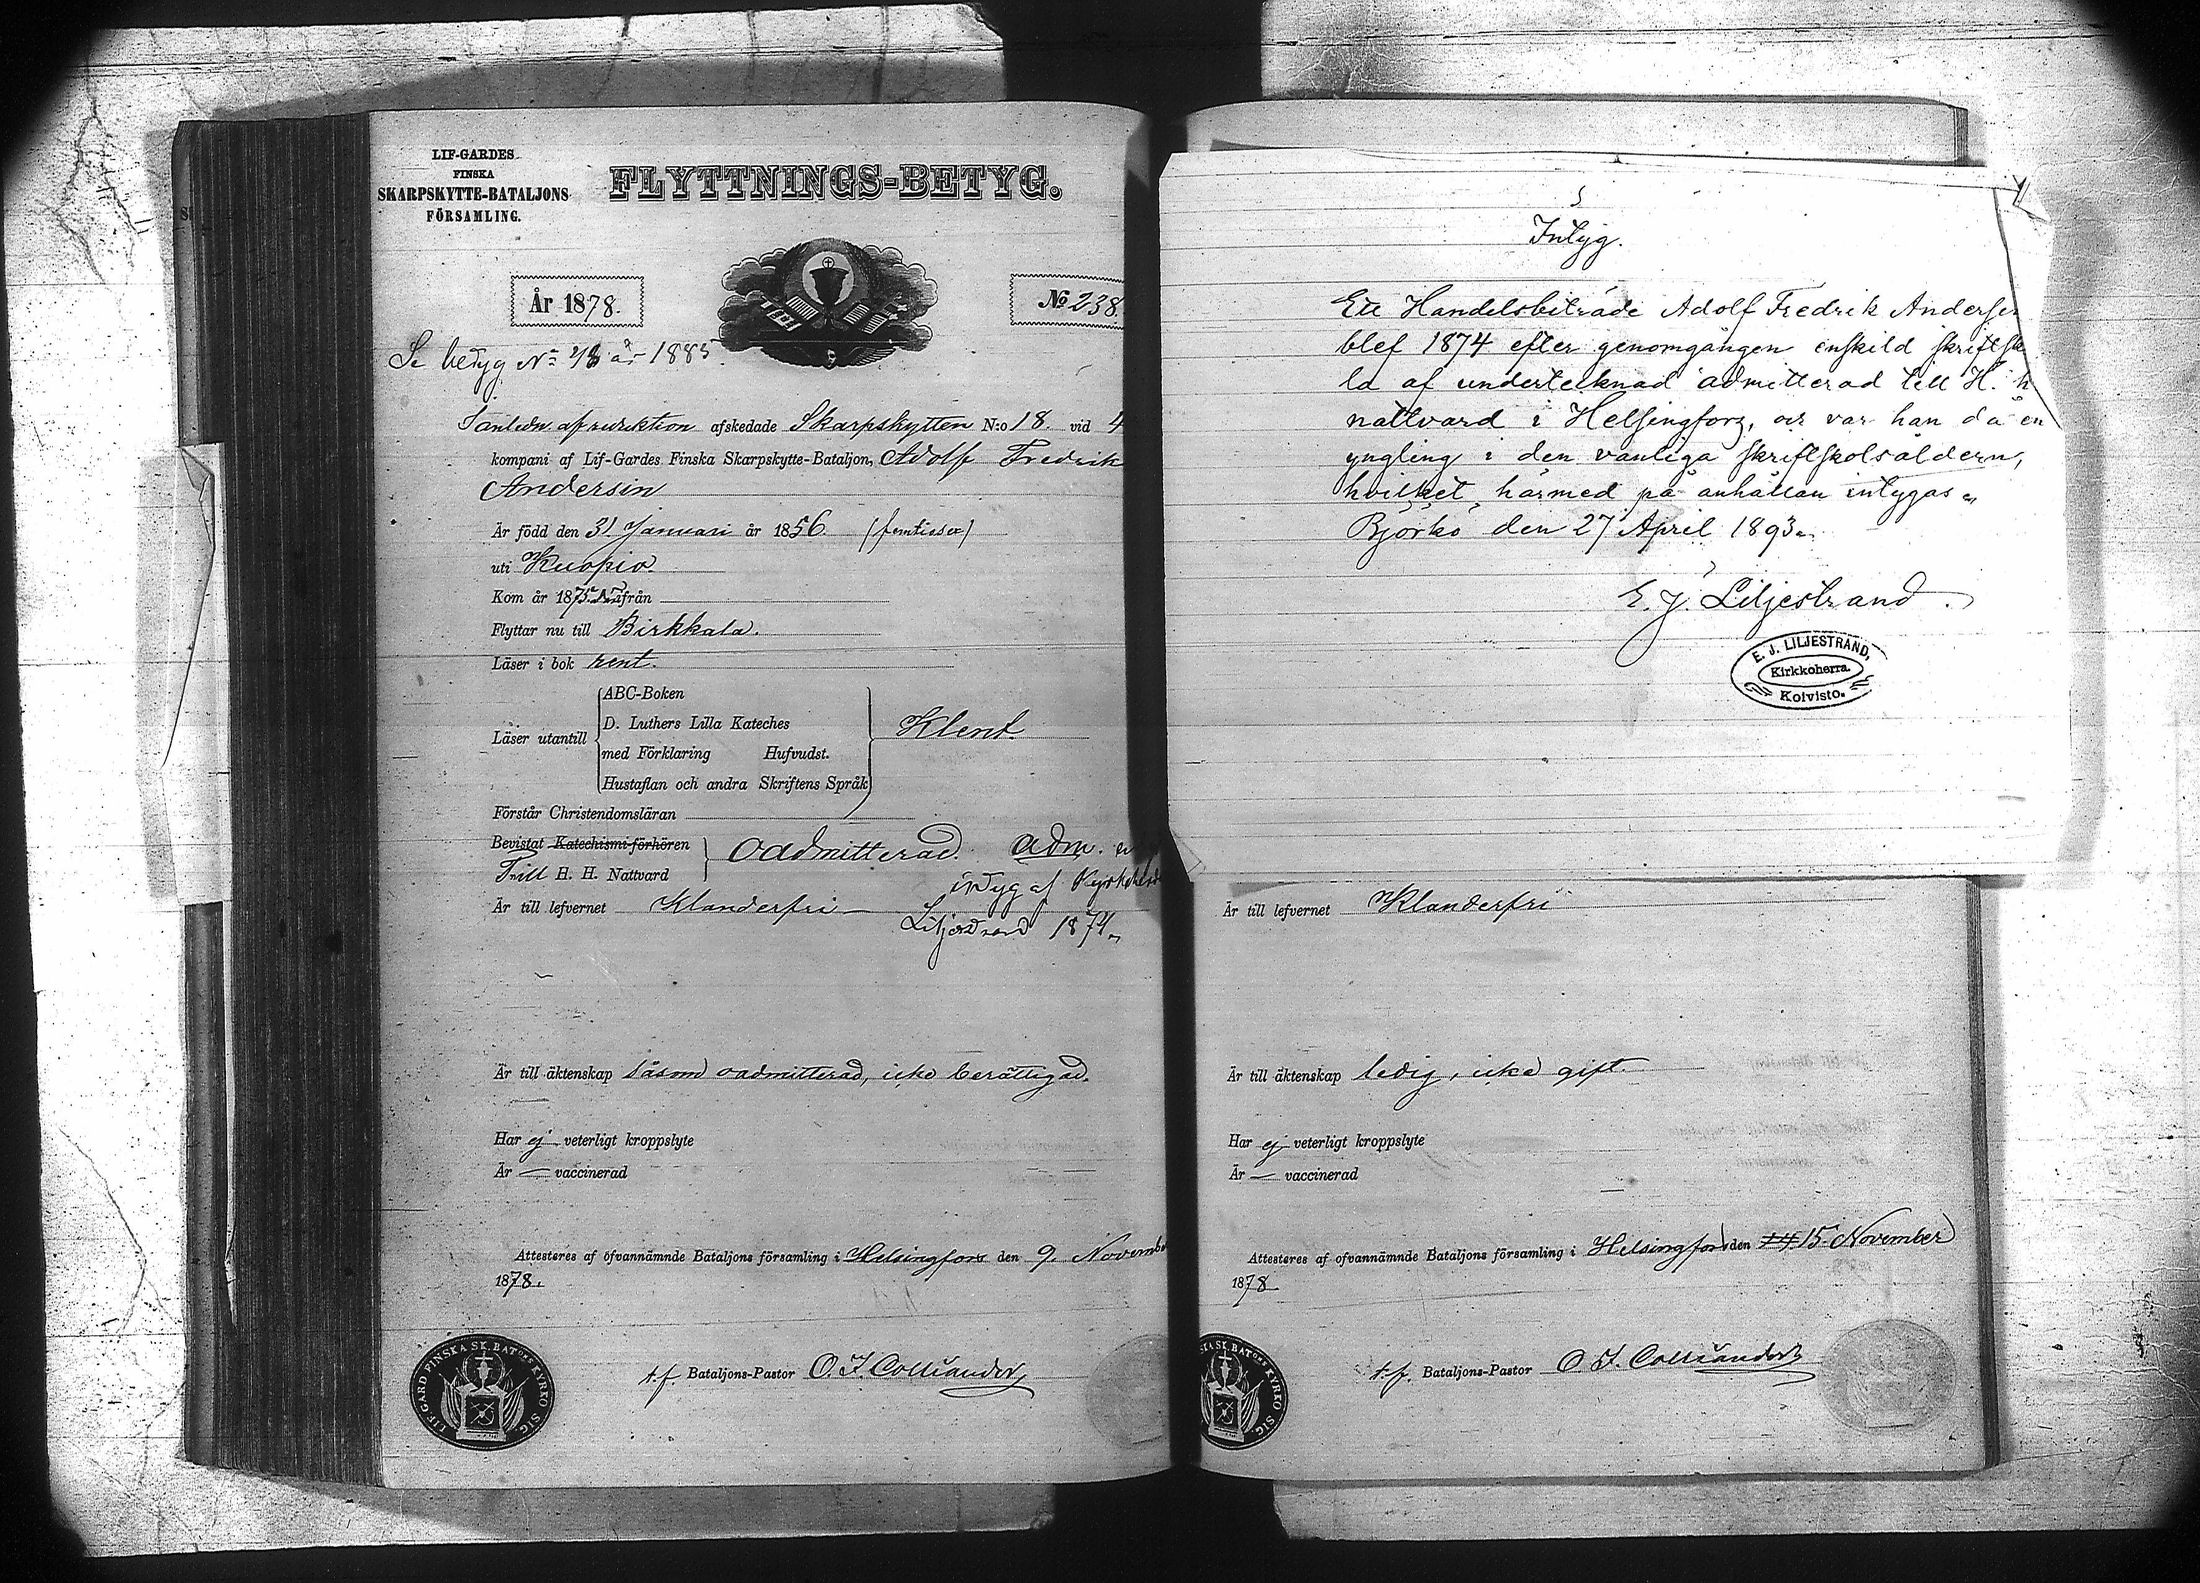 LIF-GARDES
FINSKA
SKARPSKYTTE-BATALJONS
FÖRSAMLING.
FLYTTNINGS-BETYG.
År 1878.
No 238.
Se betyg No år 1885.
afskedade Skarpskytten N:o 18 vid 4
kompani af Lif-Gardes Finska Skarpskytte-Bataljon, Adolf Fredrik
Andersin
Är född den 31 Januari år 1856 (femtiosex)
uti Kuopio.
Kom år 1875 från
Flyttar nu till Birkkala.
Läser i bok rent.
Läser utantill
ABC-Boken
D. Luthers Lilla Kateches
med Förklaring Hufvudst.
Hustaflan och andra Skriftens Språk
Klent.
Förstår Christendomsläran
Bevistat Katechismi-förhören
Till H. H. Nattvard
oadmitterad. adm.
intyg af Kyrkoherd
Liljestrand 1874.
Är till lefvernet Klanderfri
Är till äktenskap såsom oadmitterad, icke berättigad.
Har ej veterligt kroppslyte
Är — vaccinerad
Attesteras af ofvannämnde Bataljons församling i Helsingfors den 9. November
1878.
LIF. GARD FINSKA SK. BATONS KYRKO SIG.
t.f. Bataljons-Pastor O. F. Colliander
Intyg.
Att Handelsbiträde Adolf Fredrik Anders
blef 1874 efter genomgången enskild skriftsk
la af undertecknad admitterad till H. h
nattvard i Helsingfors, och var han då en
yngling i den vanliga skriftskolsåldern,
hvilket härmed på anhållan intygas.
Björkö den 27 April 1893.
E. J. Liljestrand.
E. J. LILJESTRAND,
Kirkkoherra.
Koivisto.
Är till lefvernet Klanderfri
Är till äktenskap ledig, icke gift.
Har ej veterligt kroppslyte
Är — vaccinerad
Attesteras af ofvannämnde Bataljons församling i Helsingfors den 14 15 November
1878
SKA SK. BATONS KYRKO SIG.
t.f. Bataljons-Pastor O. F. Colliander